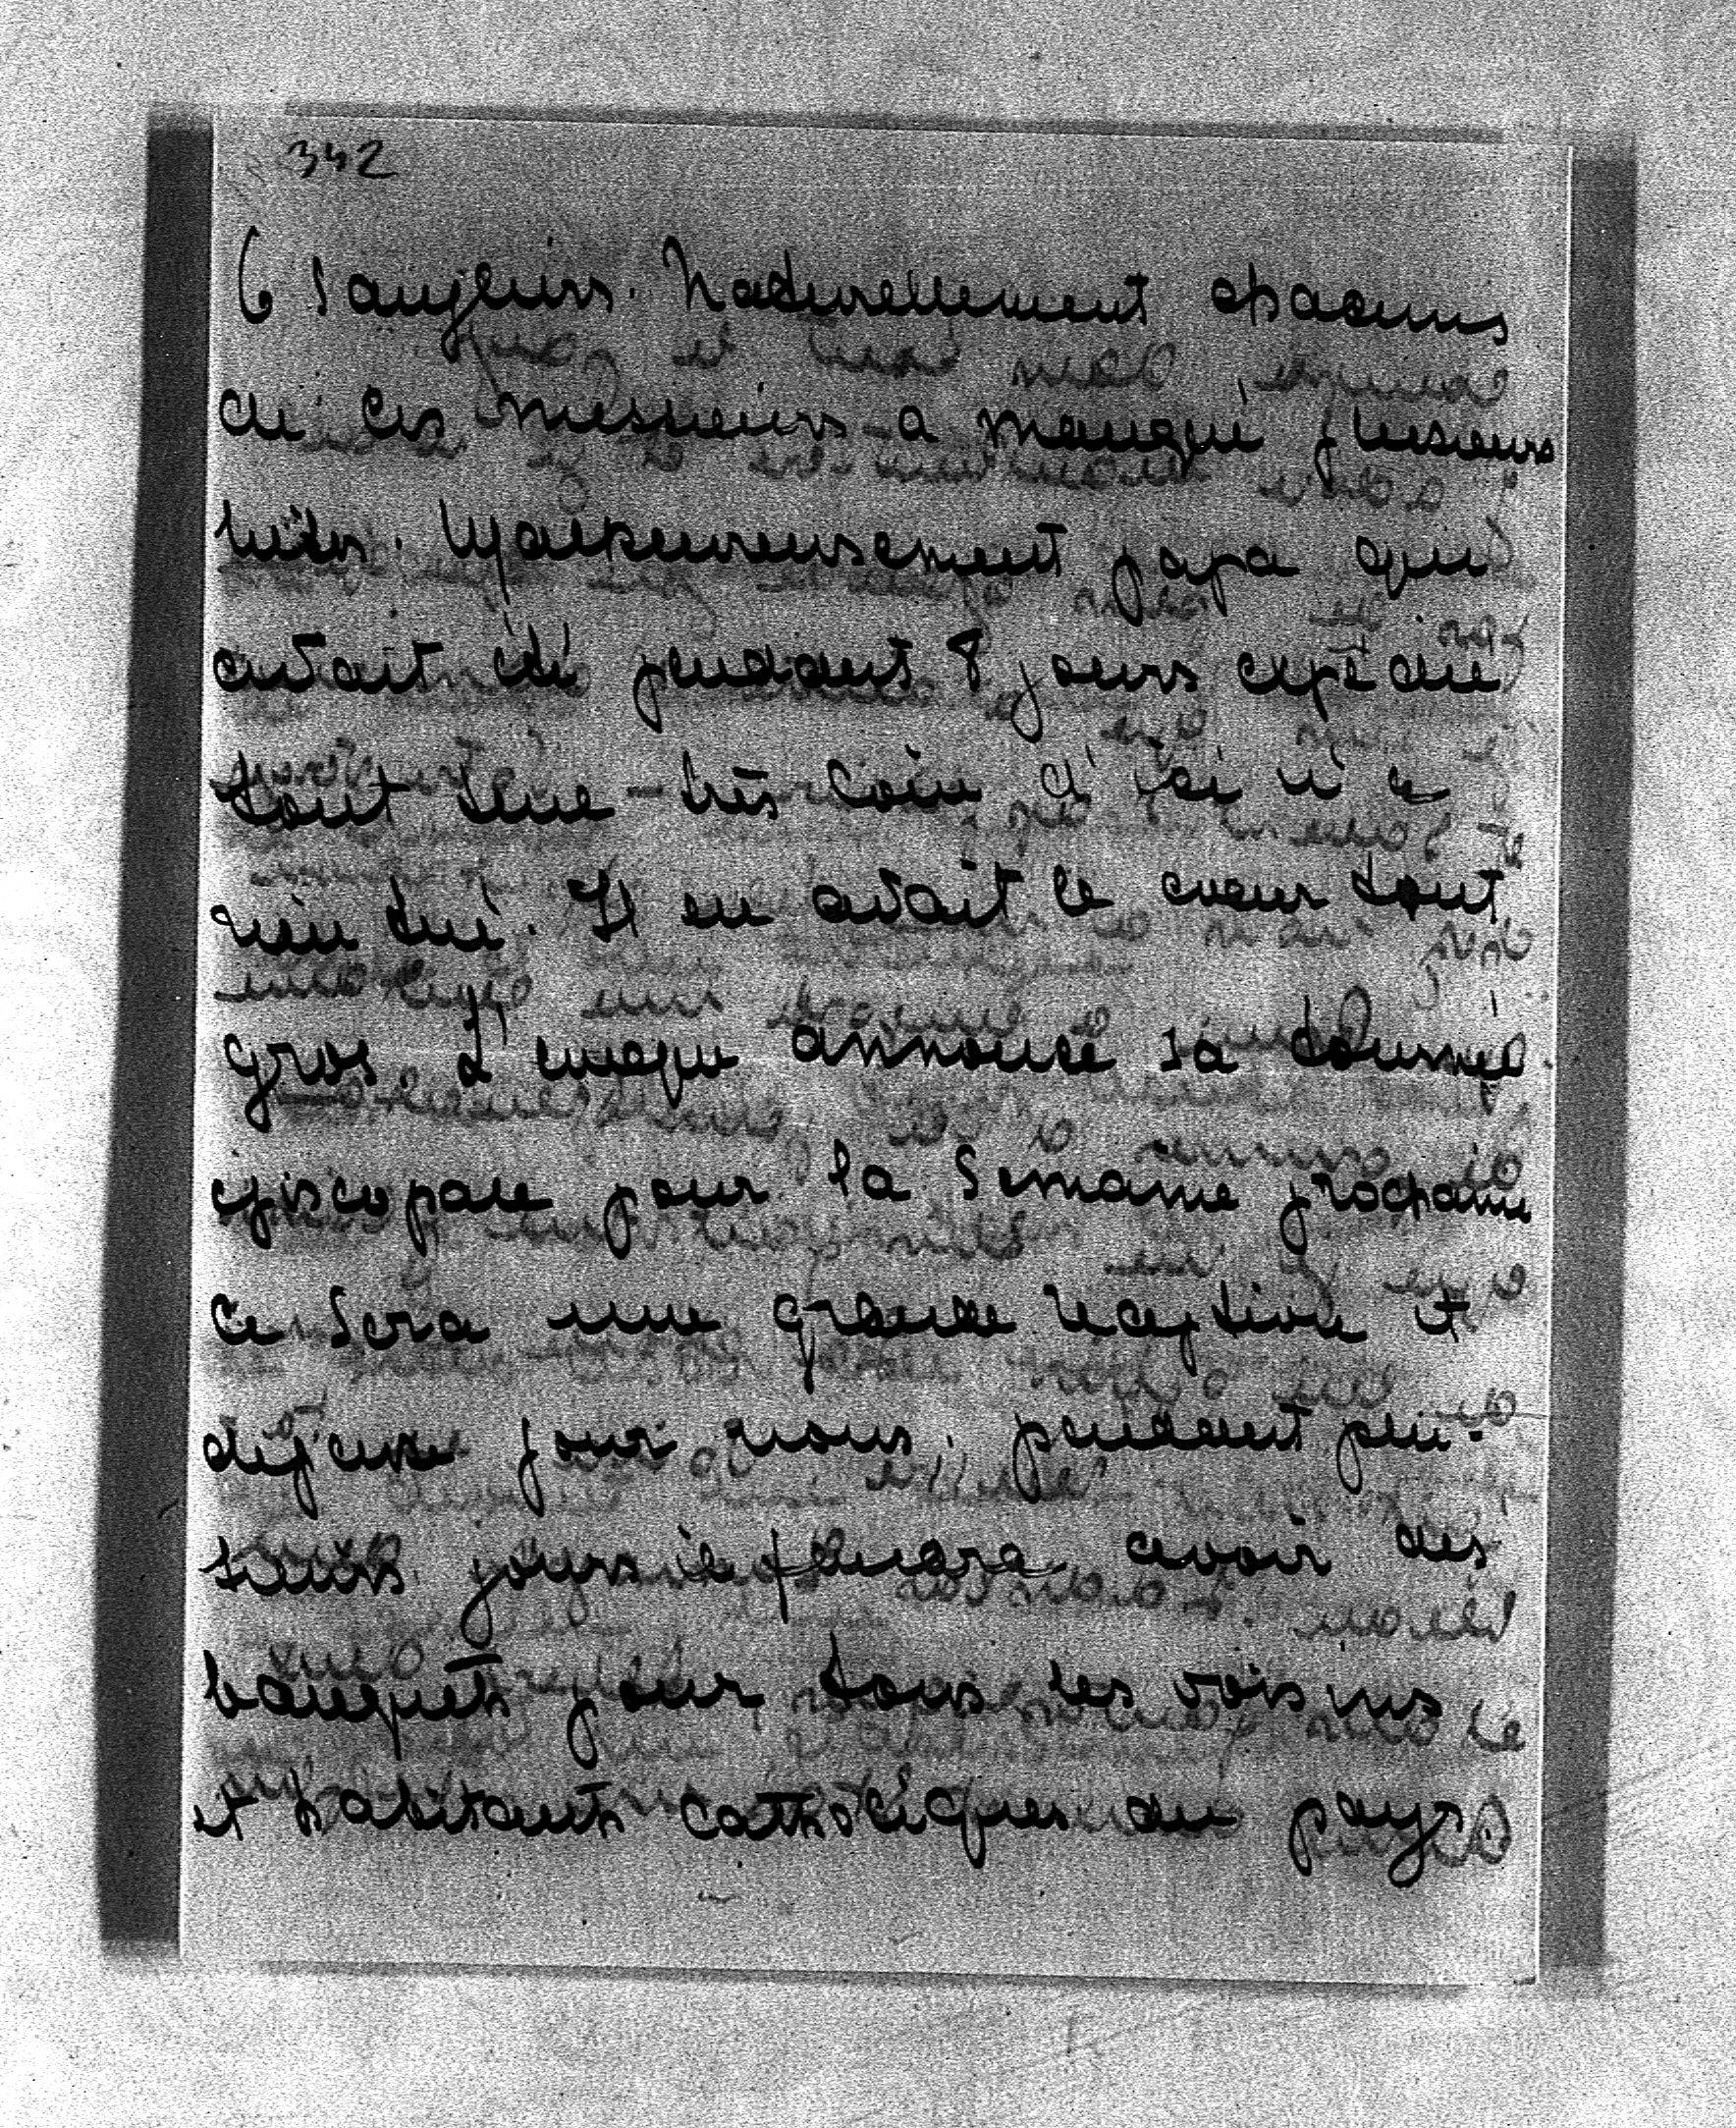 342
6 sangliers. Naturellement chacuns
de ces messieurs a manqué plusieurs
bêtes. Malheureusement papa qui
avait été pendant 8 jours expédié
tout seul très loin d'ici n'a
rien tué. Il en avait le cœur tout
gros. L'eveque annonce sa tournée
episcopale pour la semaine prochaine
ce sera une grande reception et
dejeuné pour nous, pendant plu-
sieurs jours il faudra avoir des
banquets pour tous les voisins
et habitants catholiques du pays